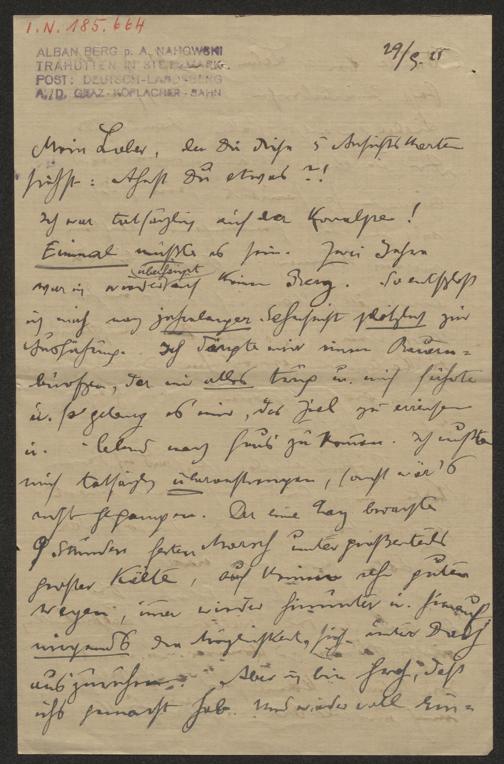 I.N. 185.664
ALBAN BERG p. A. NAHOWSKI
TRAHÜTTEN IN STEIERMARK.
POST: DEUTSCH-LANDSBERG
A./D. GRAZ-KÖFLACHER-BAHN
29/
Mein Lieber, da Du diese 5 Ansichtskarten
siehst: Ahnst Du etwas?!
Ich war tatsächlich auf der Koralpe!
Einmal mußte es sein. Zwei Jahre
war ich überhaupt auf keinem Berg. So entschloß
ich mich nach jahrelanger Sehnsucht plötzlich zur
Ausführung. Ich nahm mir einen Bauern-
burschen, der mir alles trug u. mich führte
u. so gelang es mir, das Ziel zu erreichen
u. lebend nach Haus zu kommen. Ich mußte
mich tatsächlich überanstrengen, sonst wär's
nicht gegangen. Der eine Tag brauchte
9 Stunden Marsch unter größtenteils
großer Kälte, auf keinen sehr guten
Wegen, immer wieder hinunter u. hinauf
nirgends die Möglichkeit, sich unter Dach
auszuruhen. Aber ich bin froh, daß
ichs gemacht hab. Und wieder voll Ein-